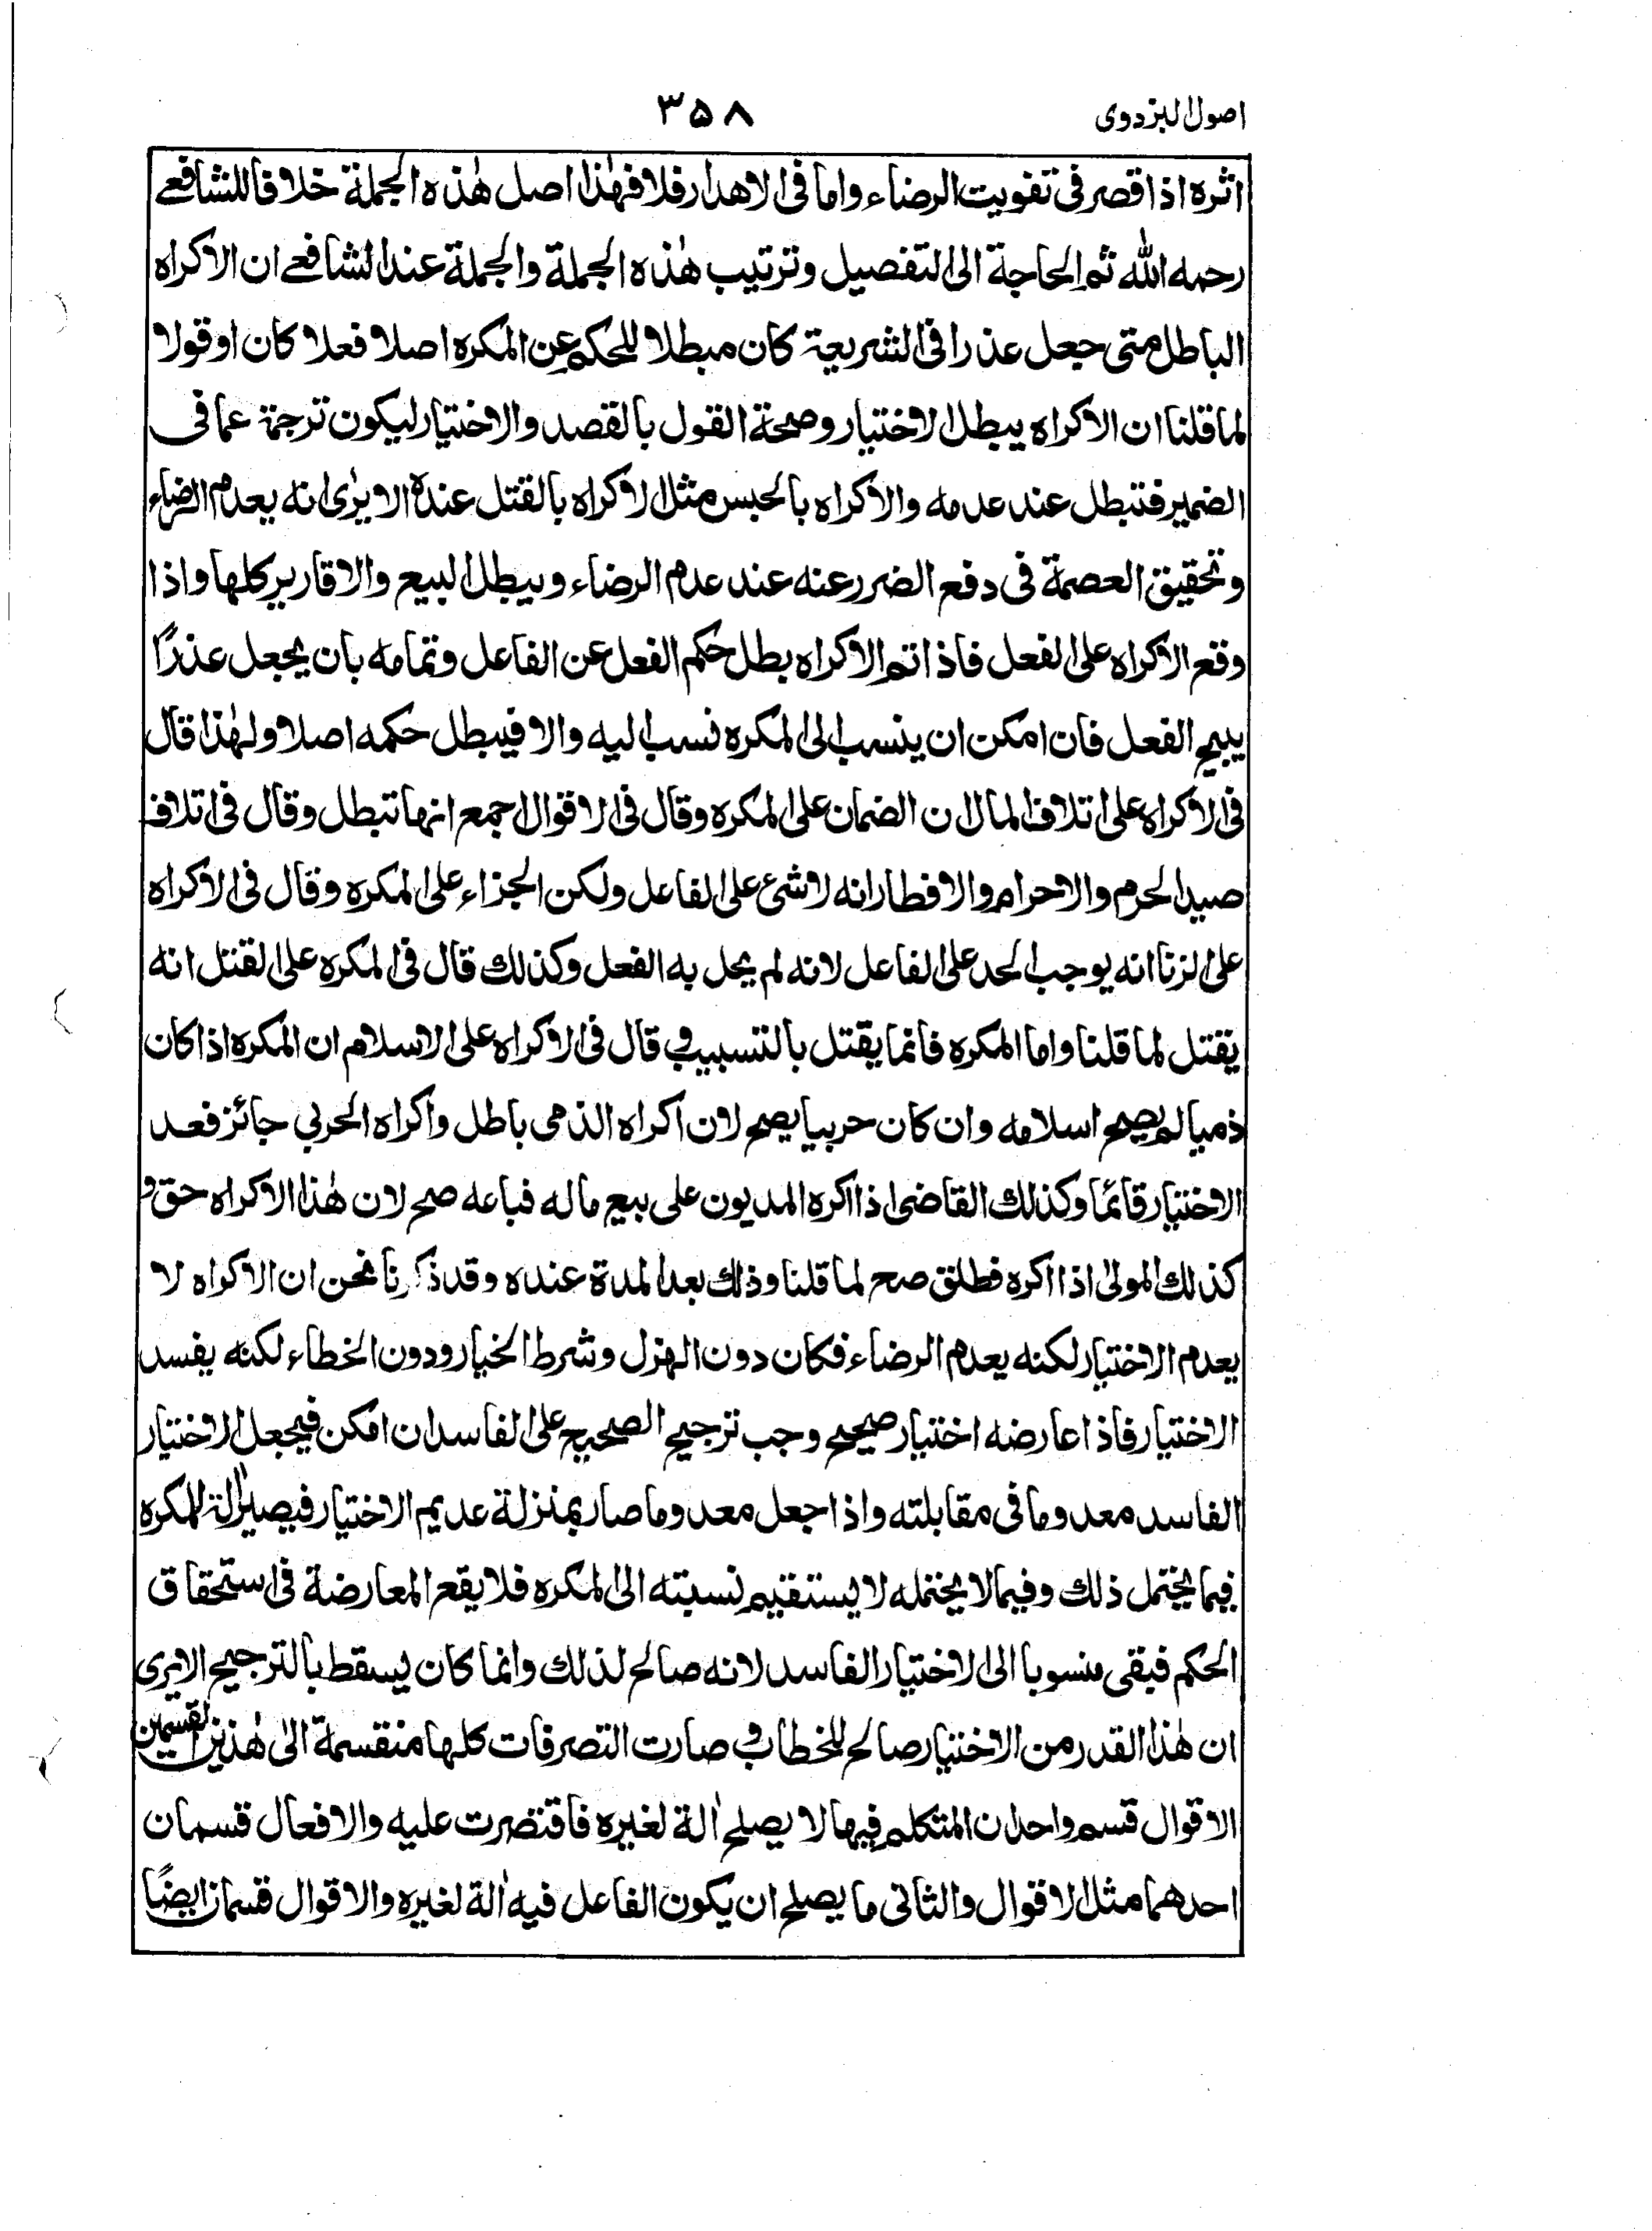 اصول البزدوی
۳۵۸
اثره اذا قصر فی تفویت الرضاء واما فی الاهدار فلا فهٰذا اصل هٰذه الجملة خلافا للشافعے
رحمه الله ثم الحاجة الی التفصیل وترتیب هٰذه الجملة والجملة عند الشافعے ان الاکراه
الباطل متی جعل عذرا فی الشریعة کان مبطلا للحکم عن المکره اصلا فعلا کان او قولا
لما قلنا ان الاکراه یبطل الاختیار وصحة القول بالقصد والاختیار لیکون ترجمة عما فی
الضمیر فتبطل عند عدمه والاکراه بالحبس مثل الاکراه بالقتل عنده الا یرٰی انه یعدم الرضاء
وتحقیق العصمة فی دفع الضرر عنه عند عدم الرضاء ویبطل البیع والاقاریر کلها واذا
وقع الاکراه علی الفعل فاذا تم الاکراه بطل حکم الفعل عن الفاعل وتمامه بان یجعل عذرًا
یبیح الفعل فان امکن ان ینسب الی المکره نسب الیه والا فیبطل حکمه اصلا ولهٰذا قال
فی الاکراه علی اتلاف المال ان الضمان علی المکره وقال فی الاقوال اجمع انها تبطل وقال فی اتلاف
صید الحرم والاحرام والافطار انه لا شئ علی الفاعل ولکن الجزاء علی المکره وقال فی الاکراه
علی الزنا انه یوجب الحد علی الفاعل لانه لم یحل به الفعل وکذلك قال فی المکره علی القتل انه
یقتل لما قلنا واما المکره فانما یقتل بالتسبیب و قال فی الاکراه علی الاسلام ان المکره اذا کان
ذمیا لم یصح اسلامه وان کان حربیا یصح لان اکراه الذمی باطل واکراه الحربی جائز فعد
الاختیار قائما وکذلك القاضی اذا اکره المدیون علی بیع ماله فباعه صح لان هٰذا الاکراه حق و
کذلك المولیٰ اذا اکره فطلق صح لما قلنا وذلك بعد المدة عنده وقد ذکرنا نحن ان الاکراه لا
یعدم الاختیار لکنه یعدم الرضاء فکان دون الهزل وشرط الخیار ودون الخطاء لکنه یفسد
الاختیار فاذا عارضه اختیار صحیح وجب ترجیح الصحیح علی الفاسد ان امکن فیجعل الاختیار
الفاسد معدوما فی مقابلته واذا جعل معدوما صار بمنزلة عدیم الاختیار فیصیر اٰلة للمکره
فیما یحتمل ذلك وفیما لا یحتمله لا یستقیم نسبته الی المکره فلا یقع المعارضة فی استحقاق
الحکم فبقی منسوبا الی الاختیار الفاسد لانه صالح لذلك وانما کان یسقط بالترجیح الا یری
ان هٰذا القدر من الاختیار صالح للخطاب و صارت التصرفات کلها منقسمة الیٰ هٰذین القسمین
الاقوال قسم واحد لان المتکلم فیها لا یصلح اٰلة لغیره فاقتصرت علیه والافعال قسمان
احدهما مثل الاقوال والثانی ما یصلح ان یکون الفاعل فیه اٰلة لغیره والاقوال قسمان ایضًا